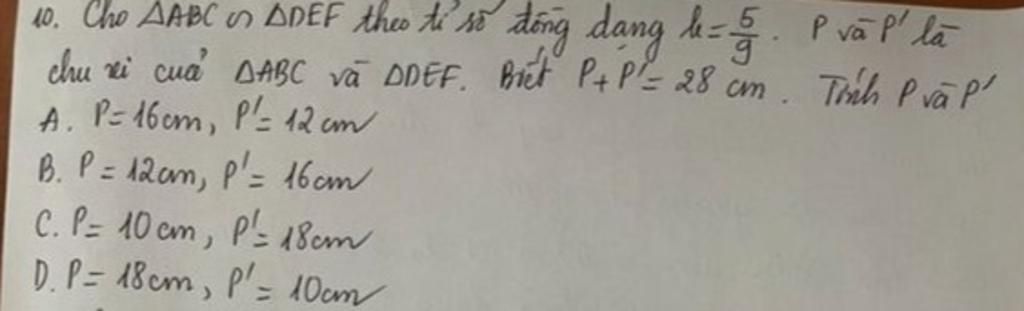 10. Cho ΔABC ∽ ΔDEF theo tỉ số đồng dạng k = 5/9. P và P' là
chu vi của ΔABC và ΔDEF. Biết P + P' = 28 cm. Tính P và P'
A. P = 16cm, P' = 12cm
B. P = 12cm, P' = 16cm
C. P = 10cm, P' = 18cm
D. P = 18cm, P' = 10cm